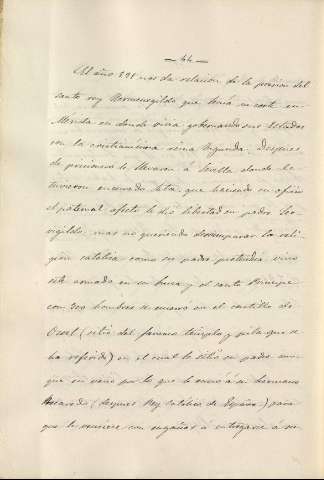 — 44 —
Al año 591 nos da relacion de la prision del
santo rey Hermenegildo que tenía su corte en
Merida en donde vivia gobernando sus Estados
con la cristianisima reina Ygunda. Despues
de prisionero le llevaron á Sevilla donde le
tuvieron encerrado hasta que haciendo su oficio
el paternal afecto le dió libertad su padre Leo-
vigildo, mas no queriendo desamparar la reli-
gion católica como su padre pretendia, vino
este armado en su busca y el santo Principe
con 300 hombres se encerró en el castillo de
Osset (sitio del famoso templo y pila que se
ha referido) en el cual le sitió su padre aun-
que en vano por lo que le envió á su hermano
Recaredo (despues Rey católico de España) para
que le reduciese con engaños á entregarse á su